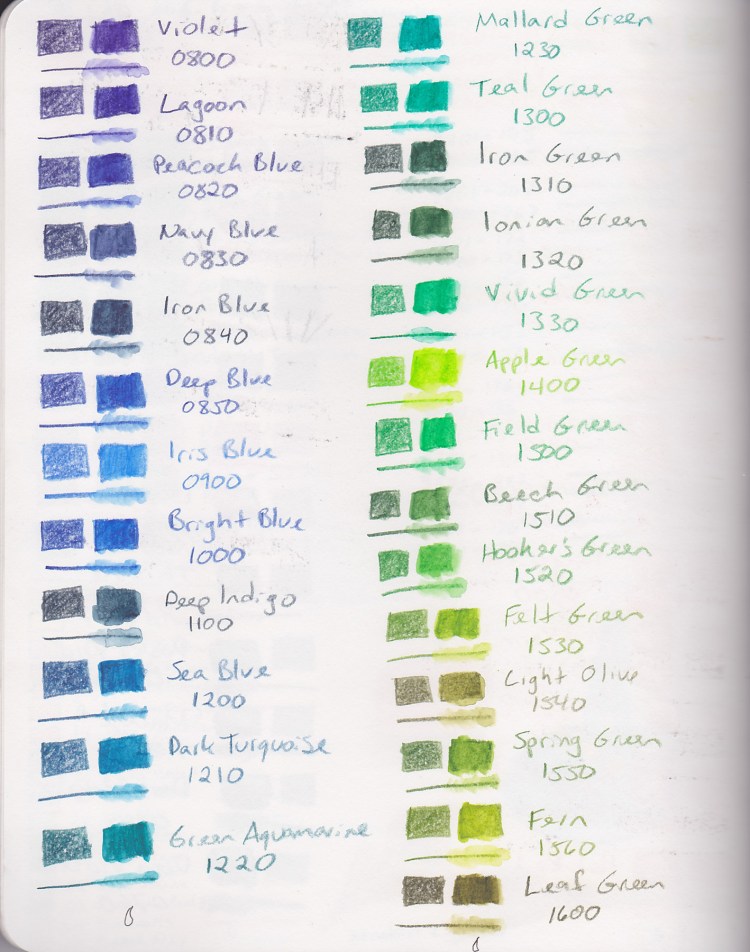 Violet
0800
Lagoon
0810
Peacock Blue
0820
Navy Blue
0830
Iron Blue
0840
Deep Blue
0850
Iris Blue
0900
Bright Blue
1000
Deep Indigo
1100
Sea Blue
1200
Dark Turquoise
1210
Green Aquamarine
1220
Mallard Green
1230
Teal Green
1300
Iron Green
1310
Ionian Green
1320
Vivid Green
1330
Apple Green
1400
Field Green
1500
Beech Green
1510
Hooker's Green
1520
Felt Green
1530
Light Olive
1540
Spring Green
1550
Fern
1560
Leaf Green
1600